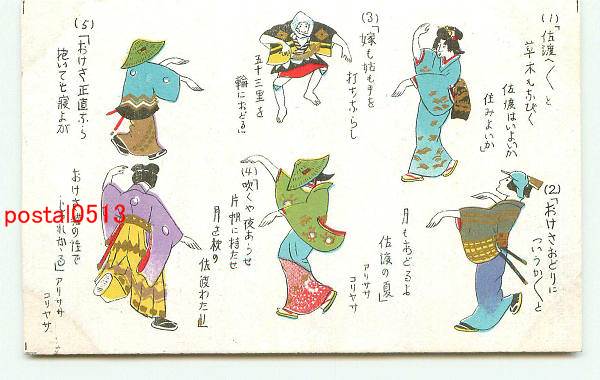 (1)「佐渡へ〱と
草木もなびく
佐渡はいよいか
住みよいか」
(2)「おけさおどりに
ついうか〱と
月もおどるよ
佐渡の夏」
アリササ
コリヤサ
(3)「嫁も姑も手を
打ちならし
五十三里を
輪におどる」
(4)「吹くや夜あらせ
片帆に持たせ
月さ秋の
佐渡わたし」
(5)「おけさ正直なら
抱いても寝よが
おけさ
の性で
アリササ
コリヤサ
postal0513